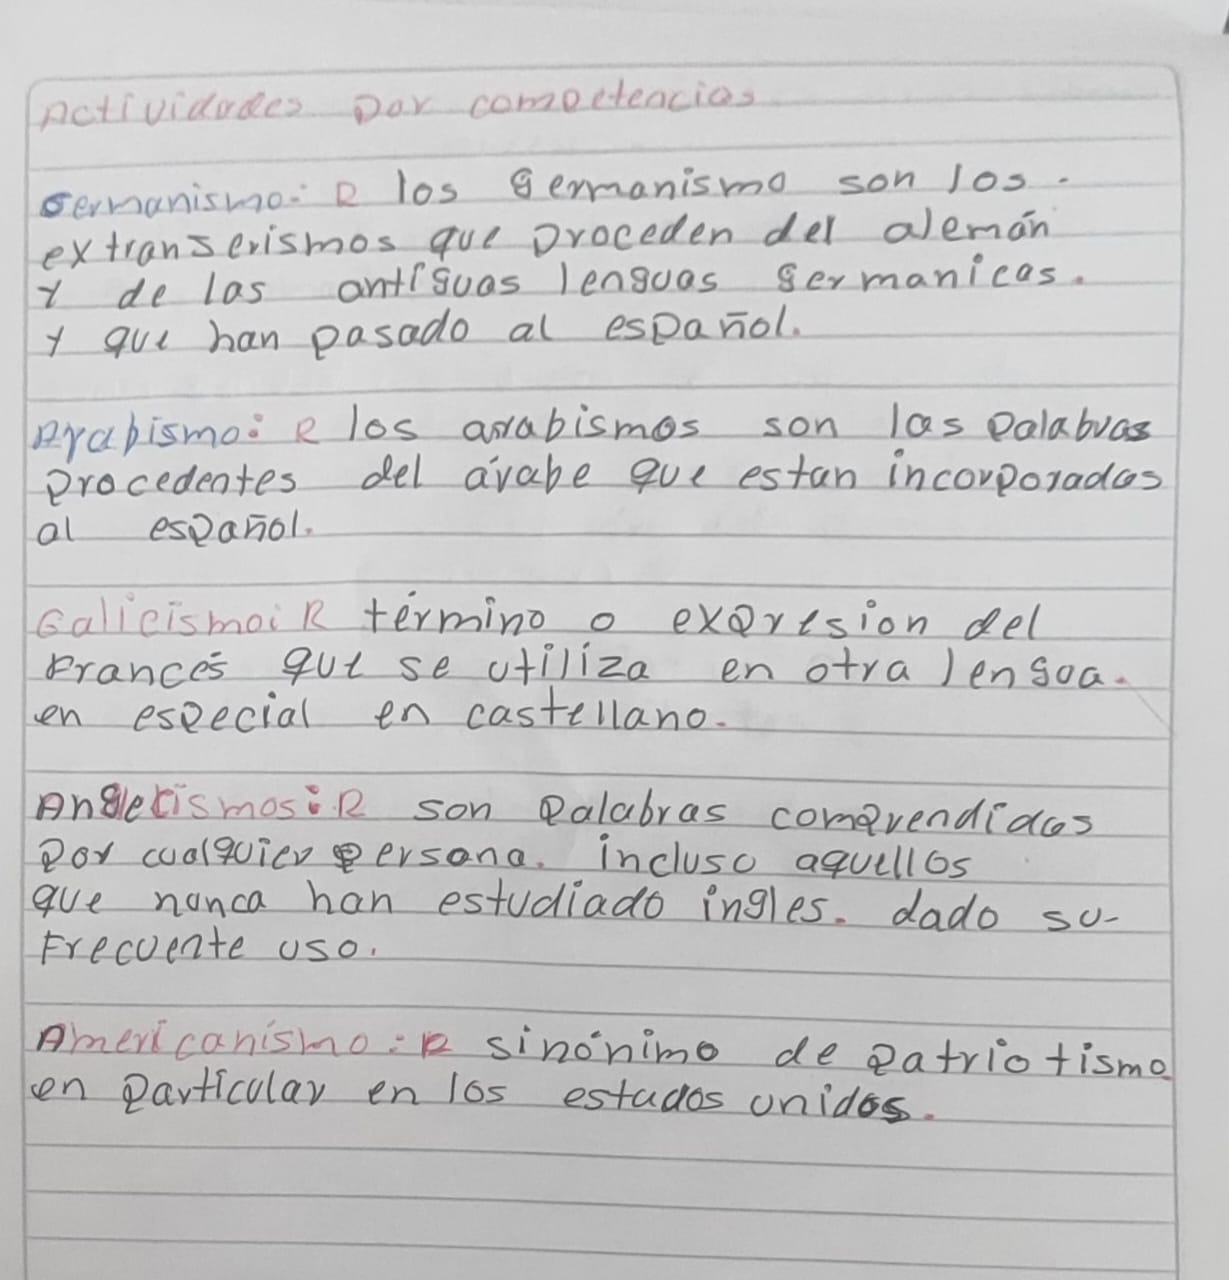 Actividades por competencias
Germanismo: R los germanismo son los.
extranserismos que proceden del alemán
y de las antiguas lenguas germanicas.
y que han pasado al español.
Arabismo: R los arabismos son las palabras
procedentes del árabe que estan incorporadas
al español.
Galicismo: R término o expresion del
Francés que se utiliza en otra lengua.
en especial en castellano.
Angletismos: R son palabras comprendidas
por cualquier persona. incluso aquellos
que nunca han estudiado ingles. dado su-
Frecuente uso.
Americanismo: R sinónimo de patriotismo
en particular en los estados unidos.